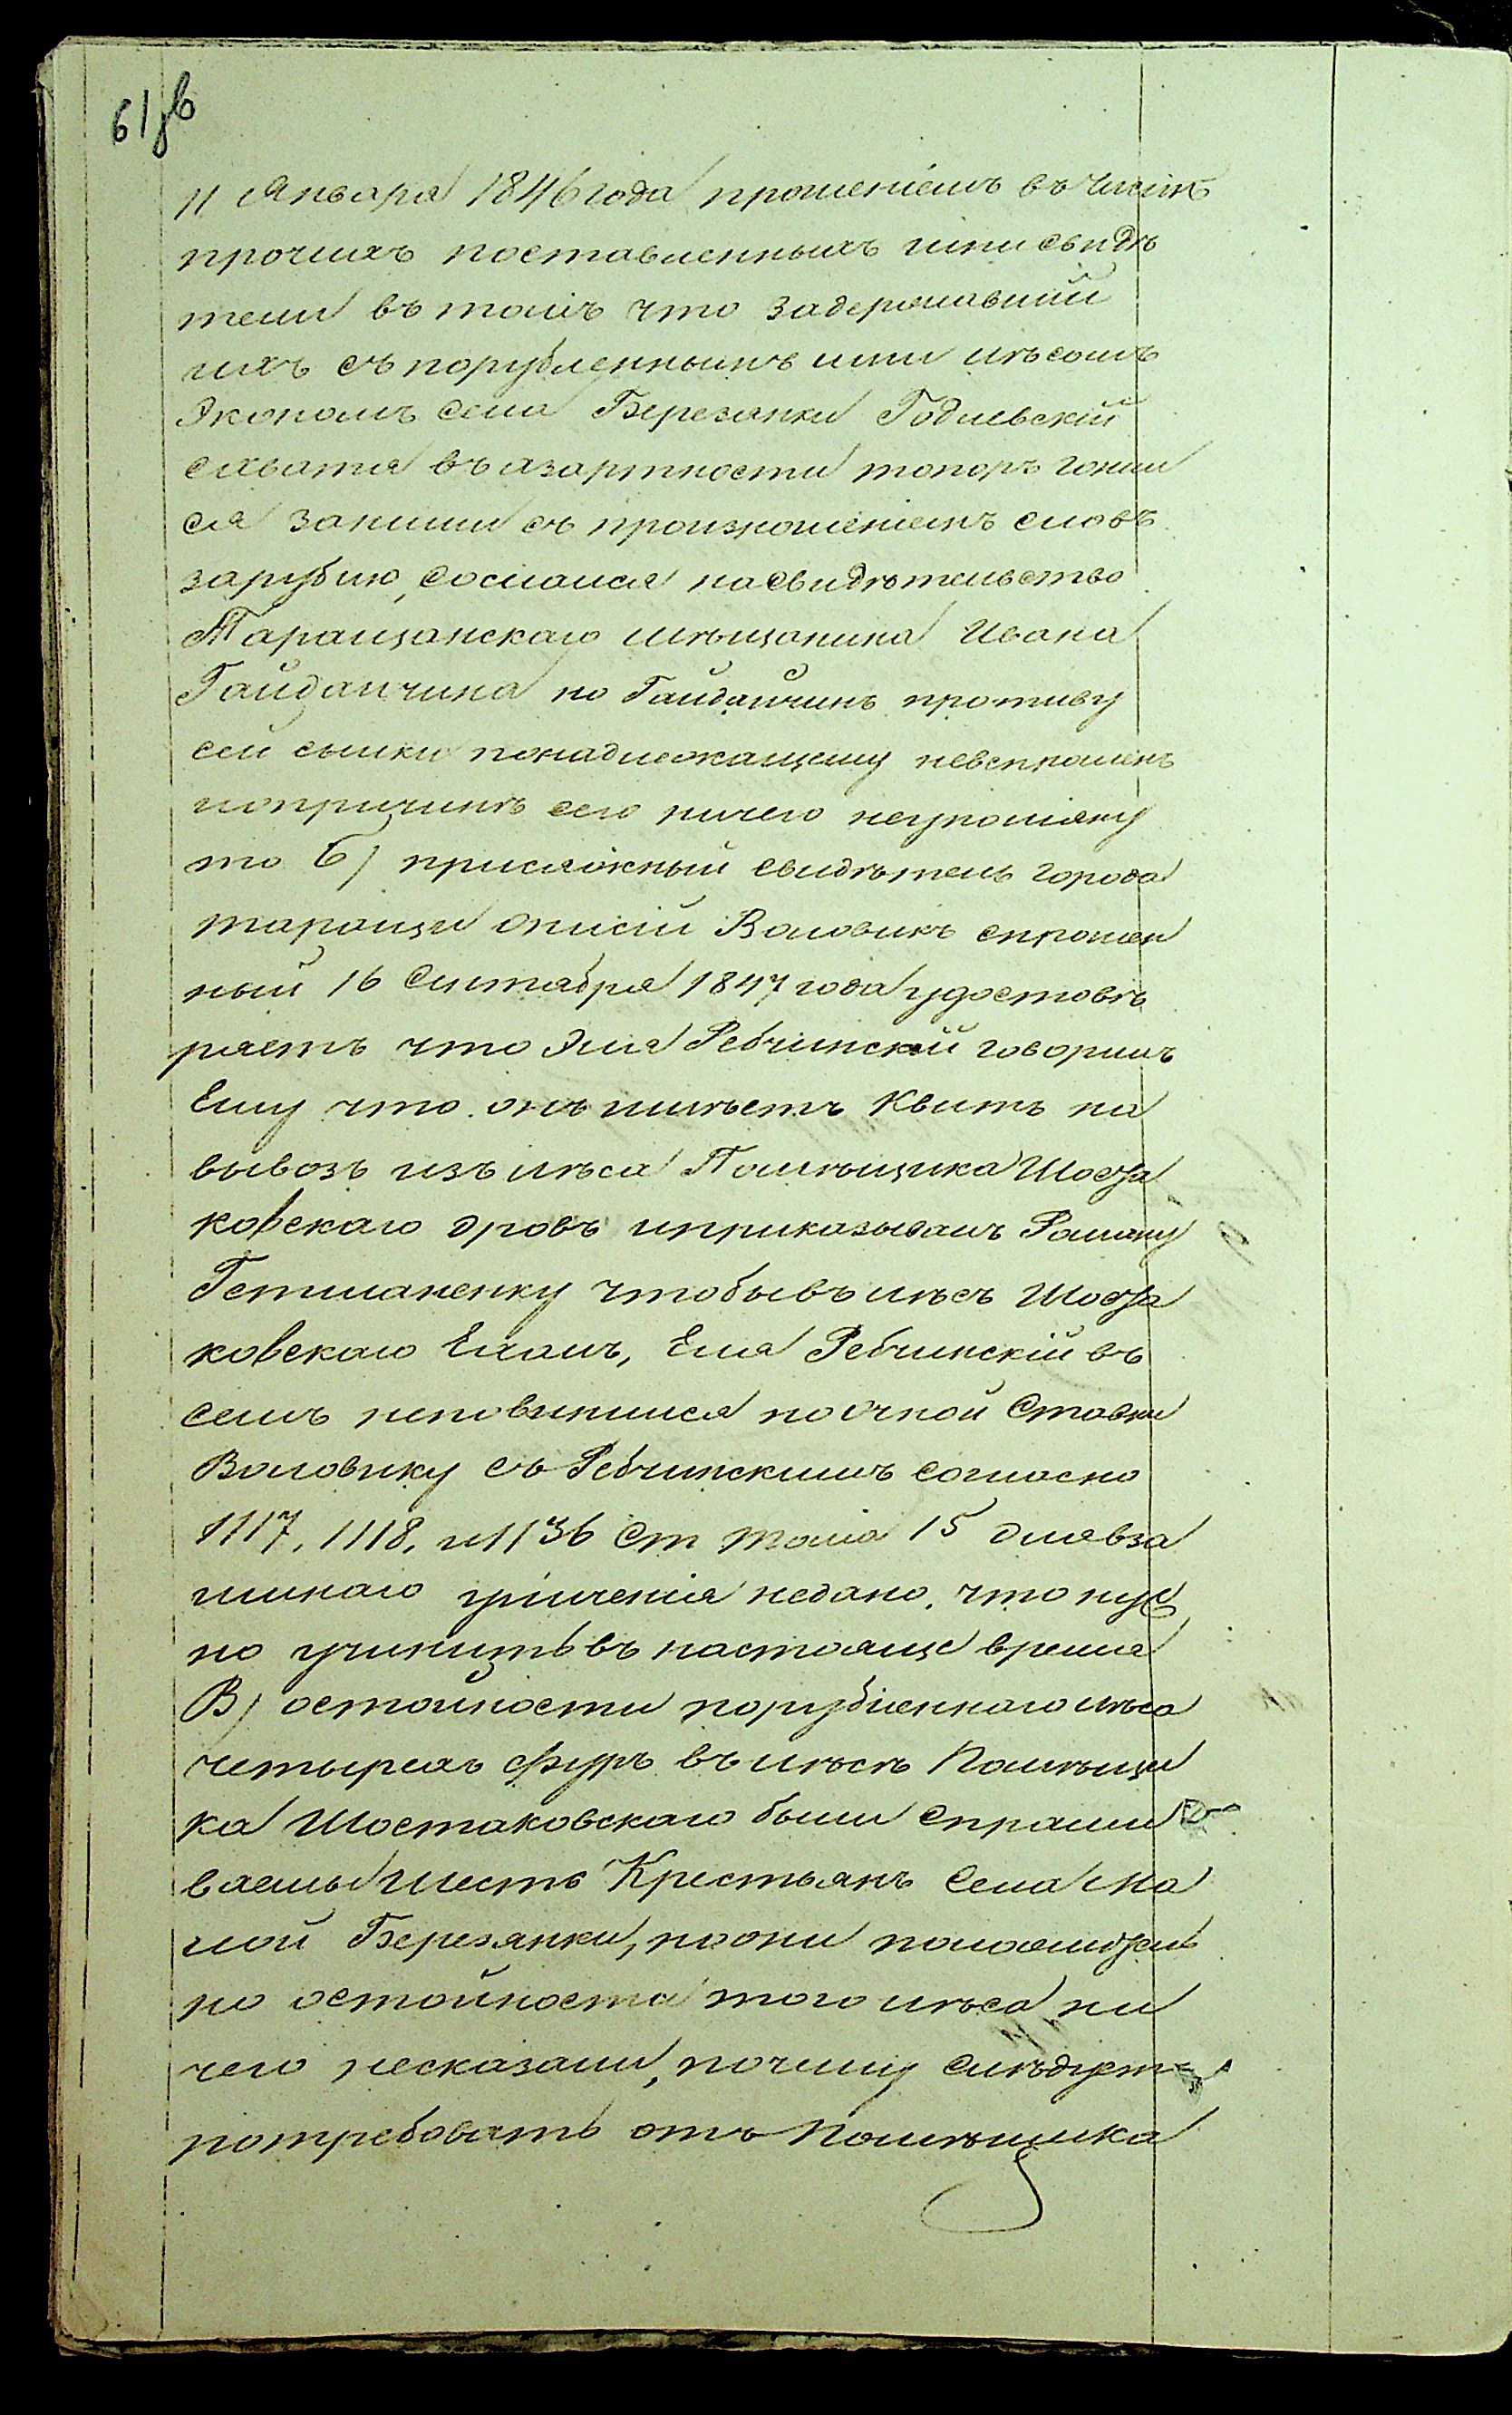 61 зв
11 Января 1846 года прошеніемъ въ числѣ
прочихъ поставленныхъ ими свидѣ
тели въ томъ что задержавшій
ихъ съ порубленнымъ ими лѣсомъ
Экономъ села Березянки Годлевскій
схватя въ азартности топоръ гонил
ся заними съ произношеніемъ словъ
зарублю, сослался на свидѣтельство
Таращанскаго мѣщанина Ивана
Гайдайчина но Гайдайчинъ противу
сей сылки понадлежащему невспрошенъ
попричинѣ сего ничего неупомяну
то б) присяжный свидѣтель города
таращи Онисій Воловикъ спрошен
ный 16 Сентября 1847 года удостовѣ
ряетъ что Эля Ребчинскій говорилъ
Ему что онъ имѣетъ Квитъ на
вывозъ изъ лѣса Помѣщика Шоста
ковскаго дровъ и приказывалъ Роману
Гетманенку чтобы въ лѣсъ Шоста
ковскаго Ехалъ, Еля Ребчинскій въ
семъ неповинился но очной Ставки
Воловику съ Ребчинскимъ согласно
1117, 1118, и 1136 Ст тома 15 для вза
имнаго уличенія недано, что нуж
но учинить въ настояще время
В) остойности порубленнаго лѣса
четырехъ фуръ въ лѣсѣ Помѣщи
ка Шостаковскаго были спраши
ваемы шесть Крестьянъ Села Ма
лой Березянки, но они положитель
но остойности того лѣса ни
чего несказали, почему слѣдует
потребовать отъ Помѣщика